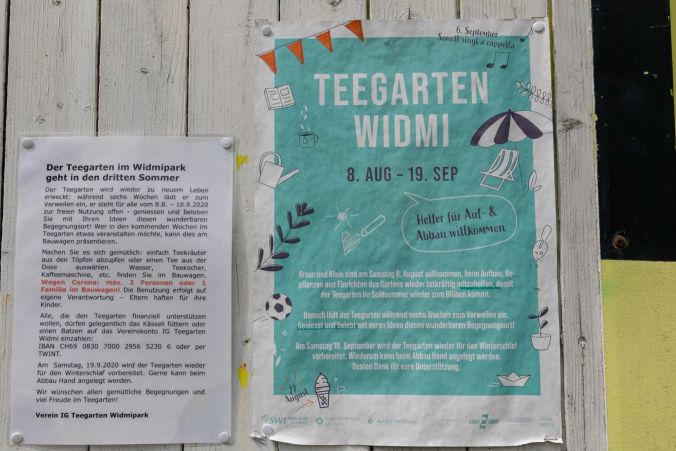 Der Teegarten im Widmipark
geht in den dritten Sommer
Der Teegarten wird wieder zu neuem Leben
erweckt: während sechs Wochen lädt er zum
Verweilen ein, er steht für alle vom 8.8. – 18.9.2020
zur freien Nutzung offen - geniessen und beleben
Sie mit Ihren Ideen diesen wunderbaren
Begegnungsort! Wer in den kommenden Wochen im
Teegarten etwas veranstalten möchte, kann dies am
Bauwagen präsentieren.
Machen Sie es sich gemütlich: einfach Teekräuter
aus den Töpfen abzupfen oder einen Tee aus der
Dose auswählen. Wasser, Teekocher,
Kaffeemaschine, etc. finden Sie im Bauwagen.
Wegen Corona: max. 2 Personen oder 1
Familie im Bauwagen! Die Benutzung erfolgt auf
eigene Verantwortung – Eltern haften für ihre
Kinder.
Alle, die den Teegarten finanziell unterstützen
wollen, dürfen gelegentlich das Kässeli füttern oder
einen Batzen auf das Vereinskonto IG Teegarten
Widmi einzahlen:
IBAN CH69 0830 7000 2956 5230 6 oder per
TWINT.
Am Samstag, 19.9.2020 wird der Teegarten wieder
für den Winterschlaf vorbereitet. Gerne kann beim
Abbau Hand angelegt werden.
Wir wünschen allen gemütliche Begegnungen und
viel Freude im Teegarten!
Verein IG Teegarten Widmipark
6. September
Sonell singt a cappella
TEEGARTEN
WIDMI
8. AUG - 19. SEP
Helfer für Auf- &
Abbau willkommen
Gross und Klein sind am Samstag 8. August willkommen, beim Aufbau, Be-
pflanzen und Einrichten des Gartens wieder tatkräftig mitzuhelfen, damit
der Teegarten im Spätsommer wieder zum Blühen kommt.
Danach lädt der Teegarten während sechs Wochen zum Verweilen ein.
Geniesst und belebt mit euren Ideen diesen wunderbaren Begegnungsort!
Am Samstag 19. September wird der Teegarten wieder für den Winterschlaf
vorbereitet. Wiederum kann beim Abbau Hand angelegt werden.
Besten Dank für eure Unterstützung.
22
August
SWL